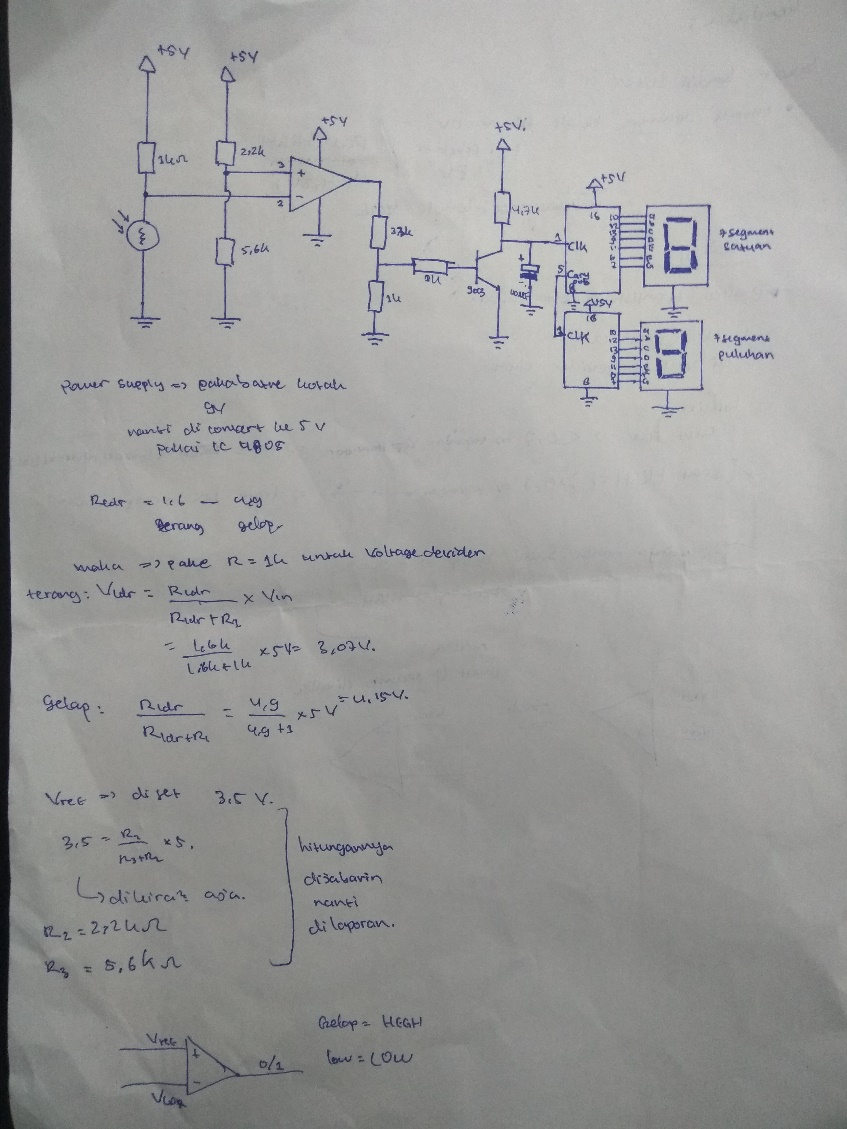 +5V
+5V
+5V
+5V.
+5V
1kΩ
2,2k
3
+
-
2
5,6k
33k
1k
4,7k
1
Clk
16
5
7 segmen
satuan
+5V
16
1
CLK
8
7 segmen
puluhan
Power Supply => pakai batre kotak
9V
nanti di convert ke 5 V
pakai IC
Rldr = 1,6 — 4,9
terang gelap
maka => pake R = 1k untuk voltage devider
terang: Vldr = Rldr
Rldr + R1
x Vin
= 1,6k
1,6k+1k
x 5V = 3,07V.
Gelap: Rldr
Rldr+R1
= 4,9
4,9 +1
x 5 V = 4,15V.
Vref => diset 3,5 V.
3,5 = R2
R3+R2
x 5.
dikira2 aja.
R2 = 2,2kΩ
R3 = 5,6kΩ
hitungannya
dijabarin
nanti
dilaporan.
Gelap = HIGH
low = LOW
Vref
+
-
0/1
VLDR